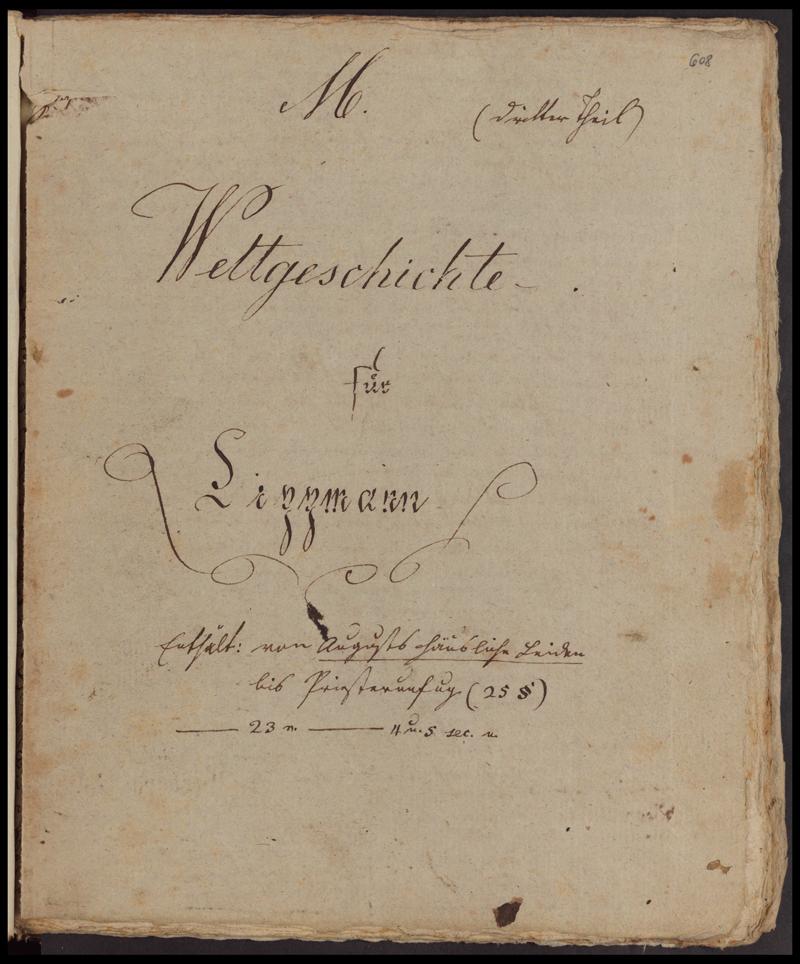 608
M.
(dritter Theil)
Weltgeschichte.
für
Lippmann
Enthält: von Augusts häusliche Leiden
bis Priesterunfug (25 §)
23 n. 4 u. 5 sec. n.